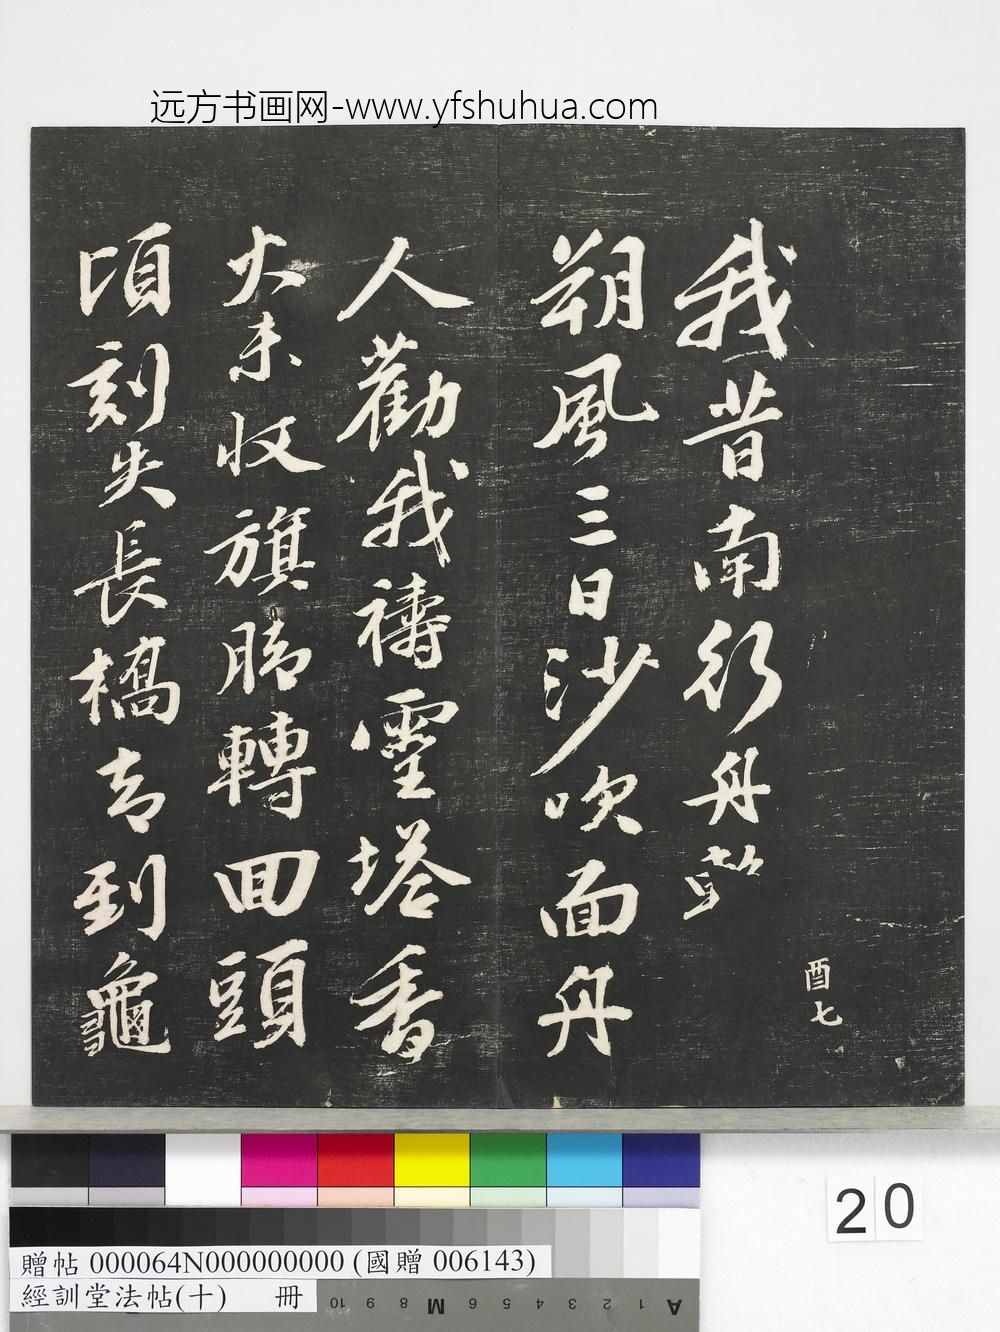 远方书画网-www.yfshuhua.com
我昔南行舟
朔風三日沙吹面舟
人勸我禱靈塔香
火未收旗腳轉回頭
頃刻失長橋却到龜
酉七
20
贈帖 000064N000000000 (國贈 006143)
經訓堂法帖(十) 冊
10 9 8 M 6 5 4 3 2 1 A